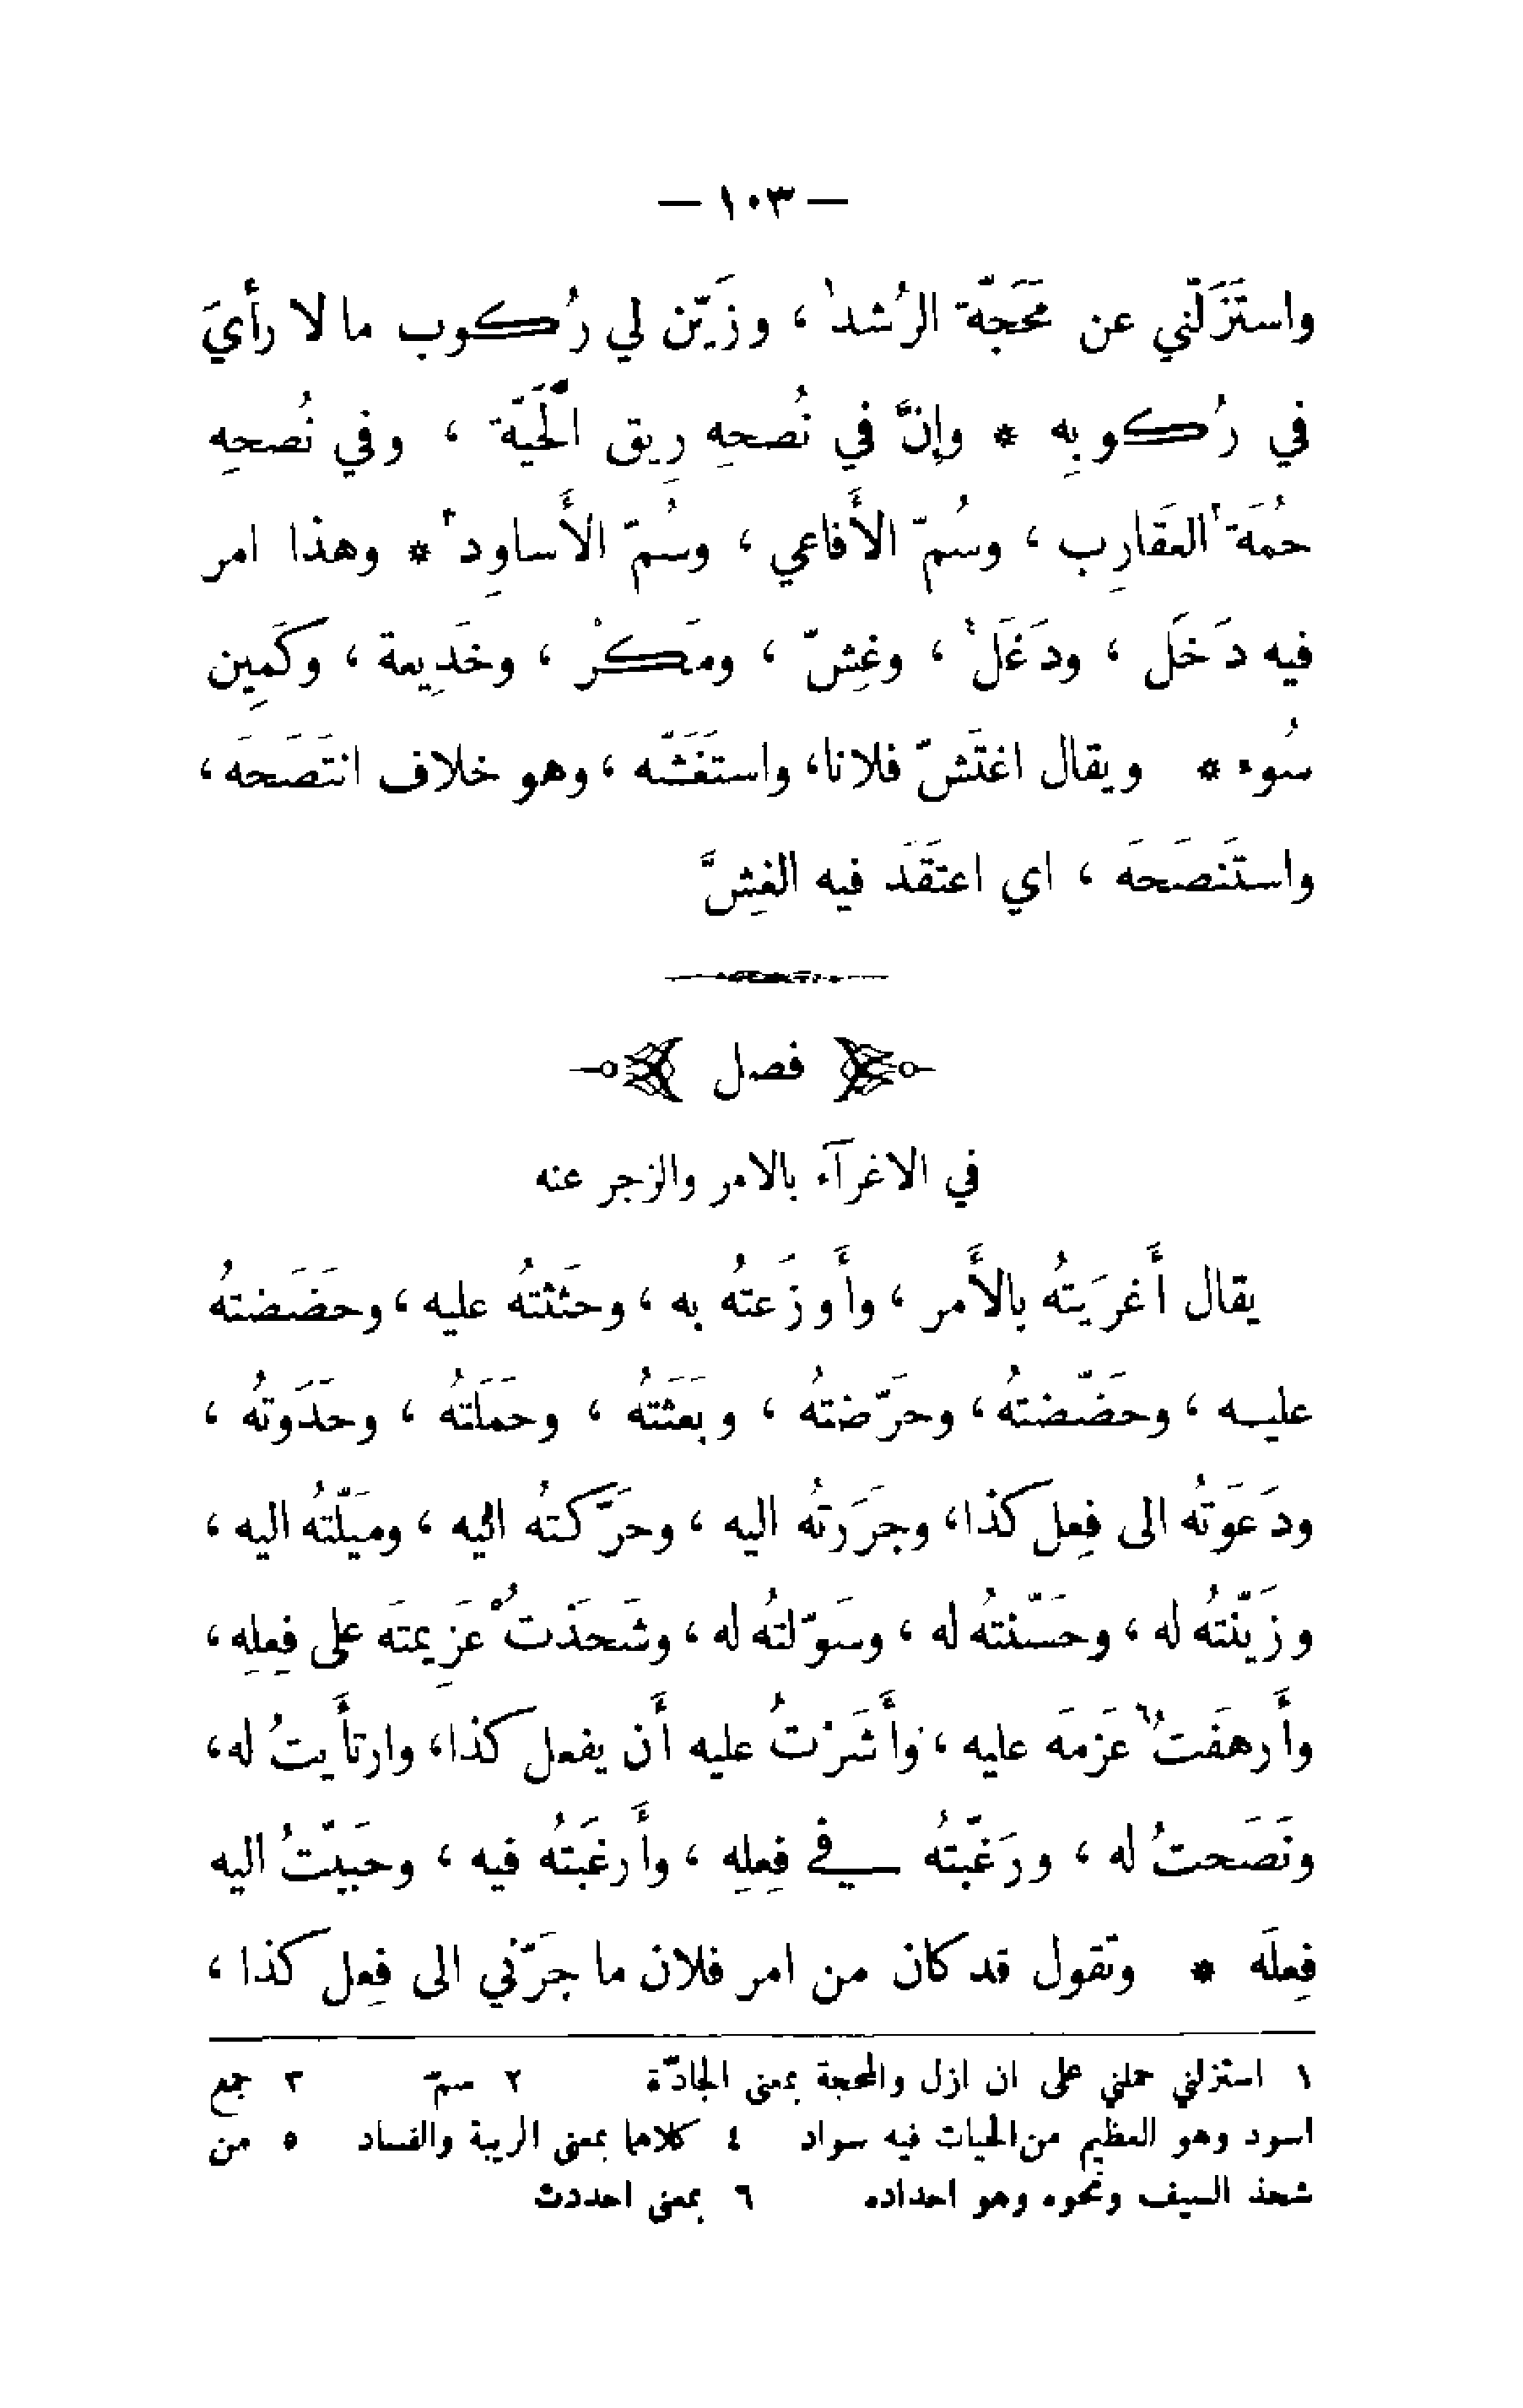 — ١٠٣ —
واستَزَلّني عن مَحَجّة الرُشد١ ، وزَيّن لي رُكوب ما لا رأيَ
في رُكوبِه * وإنَّ في نُصحِه رِيق الحَيّة ، وفي نُصحِه
حُمَة٢ العَقارِب ، وسُمّ الأَفاعي ، وسُمّ الأَساوِد٣ * وهذا امر
فيه دَخَل ، ودَغَل٤ ، وغِشّ ، ومَكرْ ، وخَدِيعة ، وكَمِين
سُوء * ويقال اغتَشّ فلانا ، واستَغَشّه ، وهو خلاف انتَصَحَه ،
واستَنصَحَه ، اي اعتَقَدَ فيه الغِشَّ
فصل
في الاغرآء بالامر والزجر عنه
يقال أَغرَيتهُ بالأَمر ، وأَوزَعتهُ به ، وحَثثتهُ عليه ، وحَضَضتهُ
عليه ، وحَضّضتهُ ، وحَرّضتهُ ، وبَعَثتهُ ، وحَمَلتهُ ، وحَدَوتهُ ،
ودَعَوتهُ الى فِعل كذا ، وجَرَرتهُ اليه ، وحَرّكتهُ اليه ، ومَيّلتهُ اليه ،
وزَيّنتهُ له ، وحَسّنتهُ له ، وسَوّلتهُ له ، وشَحَذْتُ٥ عَزِيمتَه على فِعلِهِ ،
وأَرهَفتُ٦ عَزمَه عليه ، وأَشَرْتُ عليه أَن يفعل كذا ، وارتأَيتُ له ،
ونَصَحتُ له ، ورَغّبتهُ في فِعلِهِ ، وأَرغَبتهُ فيه ، وحَبّبتُ اليه
فِعلَه * وتقول قد كان من امر فلان ما جَرّني الى فِعل كذا ،
١ استزلني حملني على ان ازل والمحجة بمعنى الجادّة ٢ سمّ ٣ جمع
اسود وهو العظيم من الحيات فيه سواد ٤ كلاهما بمعنى الريبة والفساد ٥ من
شحذ السيف ونحوه وهو احداده ٦ بمعنى احددت